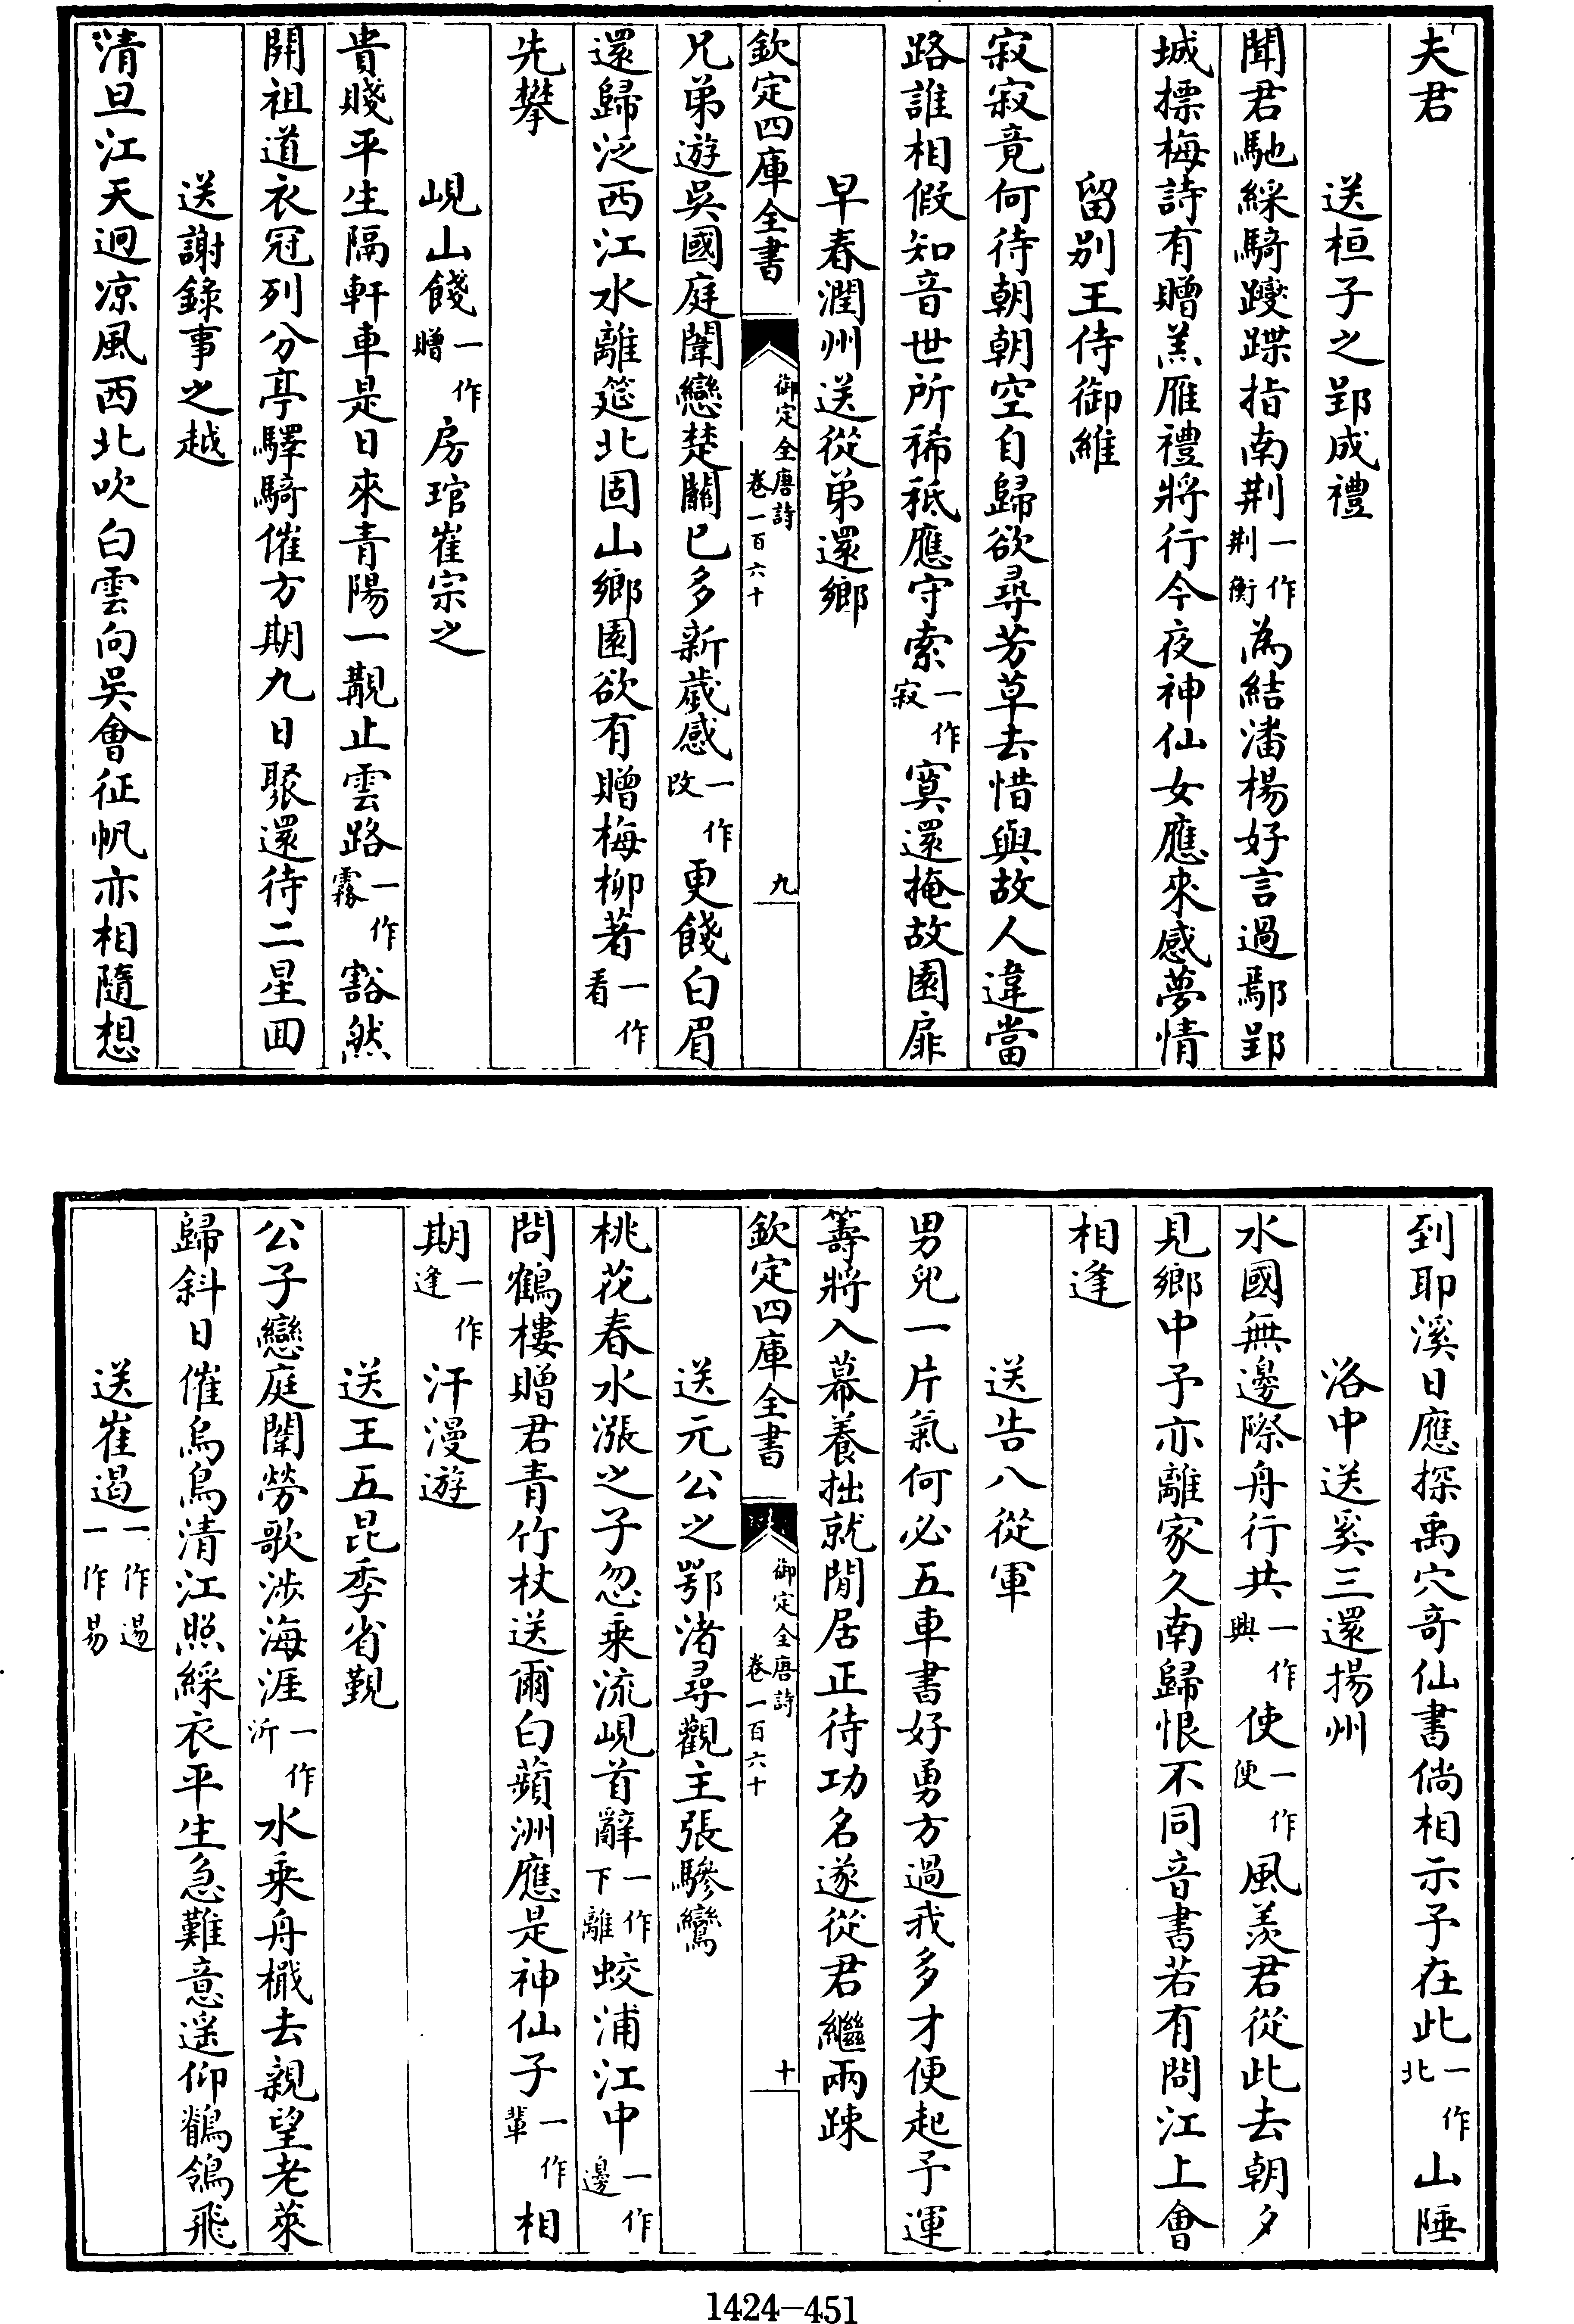 夫君
送桓子之郢成禮
聞君馳綵騎躞蹀指南荆一作荆衡為結潘楊好言過鄢郢
城摽梅詩有贈羔雁禮將行今夜神仙女應來感夢情
留别王侍御維
寂寂竟何待朝朝空自歸欲尋芳草去惜與故人違當
路誰相假知音世所稀秪應守索一作寂寞還掩故園扉
早春潤州送從弟還鄉
欽定四庫全書
御定全唐詩
卷一百六十
九
兄弟遊吳國庭闈戀楚關已多新歲感一作改更餞白眉
還歸泛西江水離筵北固山鄉園欲有贈梅柳著一作看
先攀
峴山餞一作贈房琯崔宗之
貴賤平生隔軒車是日來青陽一覯止雲路一作霧豁然
開祖道衣冠列分亭驛騎催方期九日聚還待二星回
送謝錄事之越
清旦江天迥凉風西北吹白雲向吳會征帆亦相隨想
到耶溪日應探禹穴奇仙書倘相示予在此一作北山陲
洛中送奚三還揚州
水國無邊際舟行共一作興使一作便風羨君從此去朝夕
見鄉中予亦離家久南歸恨不同音書若有問江上會
相逢
送告八從軍
男兒一片氣何必五車書好勇方過我多才便起予運
籌將入幕養拙就閒居正待功名遂從君繼兩踈
送元公之鄂渚尋觀主張驂鸞
欽定四庫全書
御定全唐詩
卷一百六十
十
桃花春水漲之子忽乘流峴首辭一作下離蛟浦江中一作邊
問鶴樓贈君青竹杖送爾白蘋洲應是神仙子一作輩相
期一作逢汗漫遊
送王五昆季省覲
公子戀庭闈勞歌涉海涯一作沂水乘舟檝去親望老萊
歸斜日催烏鳥清江照綵衣平生急難意遥仰鶺鴒飛
送崔遏一作遏一作易
1424-451